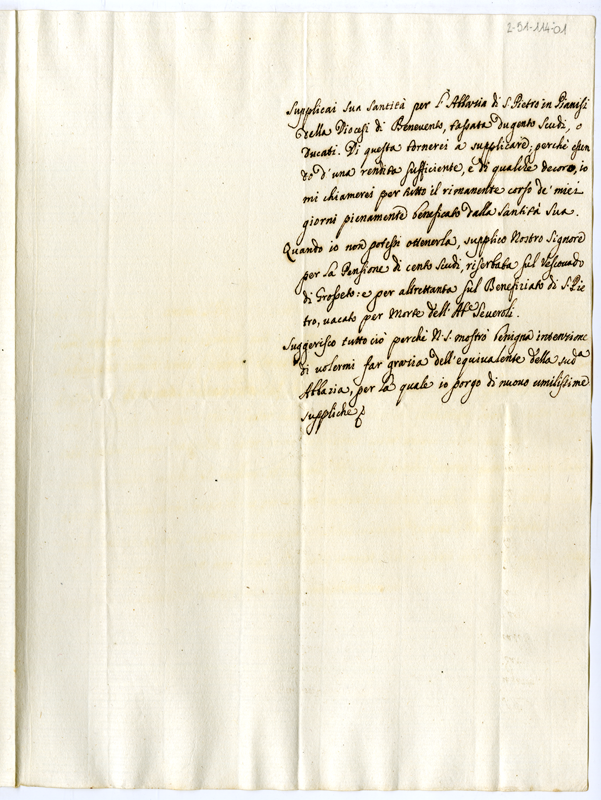 2-91-114-01
Supplicai Sua Santità per l'Abbazia di S. Pietro in Pianisi
della Diocesi di Benevento, tassata dugento Scudi, o
Ducati. Di questa tornerei a supplicare; perché essen
do d'una rendita sufficiente, e di qualche decoro, io
mi chiamerei per tutto il rimanente corso de' miei
giorni pienamente beneficato dalla Santità Sua.
Quando io non potessi ottenerla, supplico Nostro Signore
per la Pensione di cento Scudi, riserbata sul Vescovado
di Grosseto: e per altrettanta sul Benefiziato di S. Pie
tro, vacato per Morte dell'Ab.e Severoli.
Suggerisco tutto ciò perché N. S. mostrò benigna intenzione
di volermi far grazia dell'equivalente della sud.a
Abbazia, per la quale io porgo di nuovo umilissime
suppliche